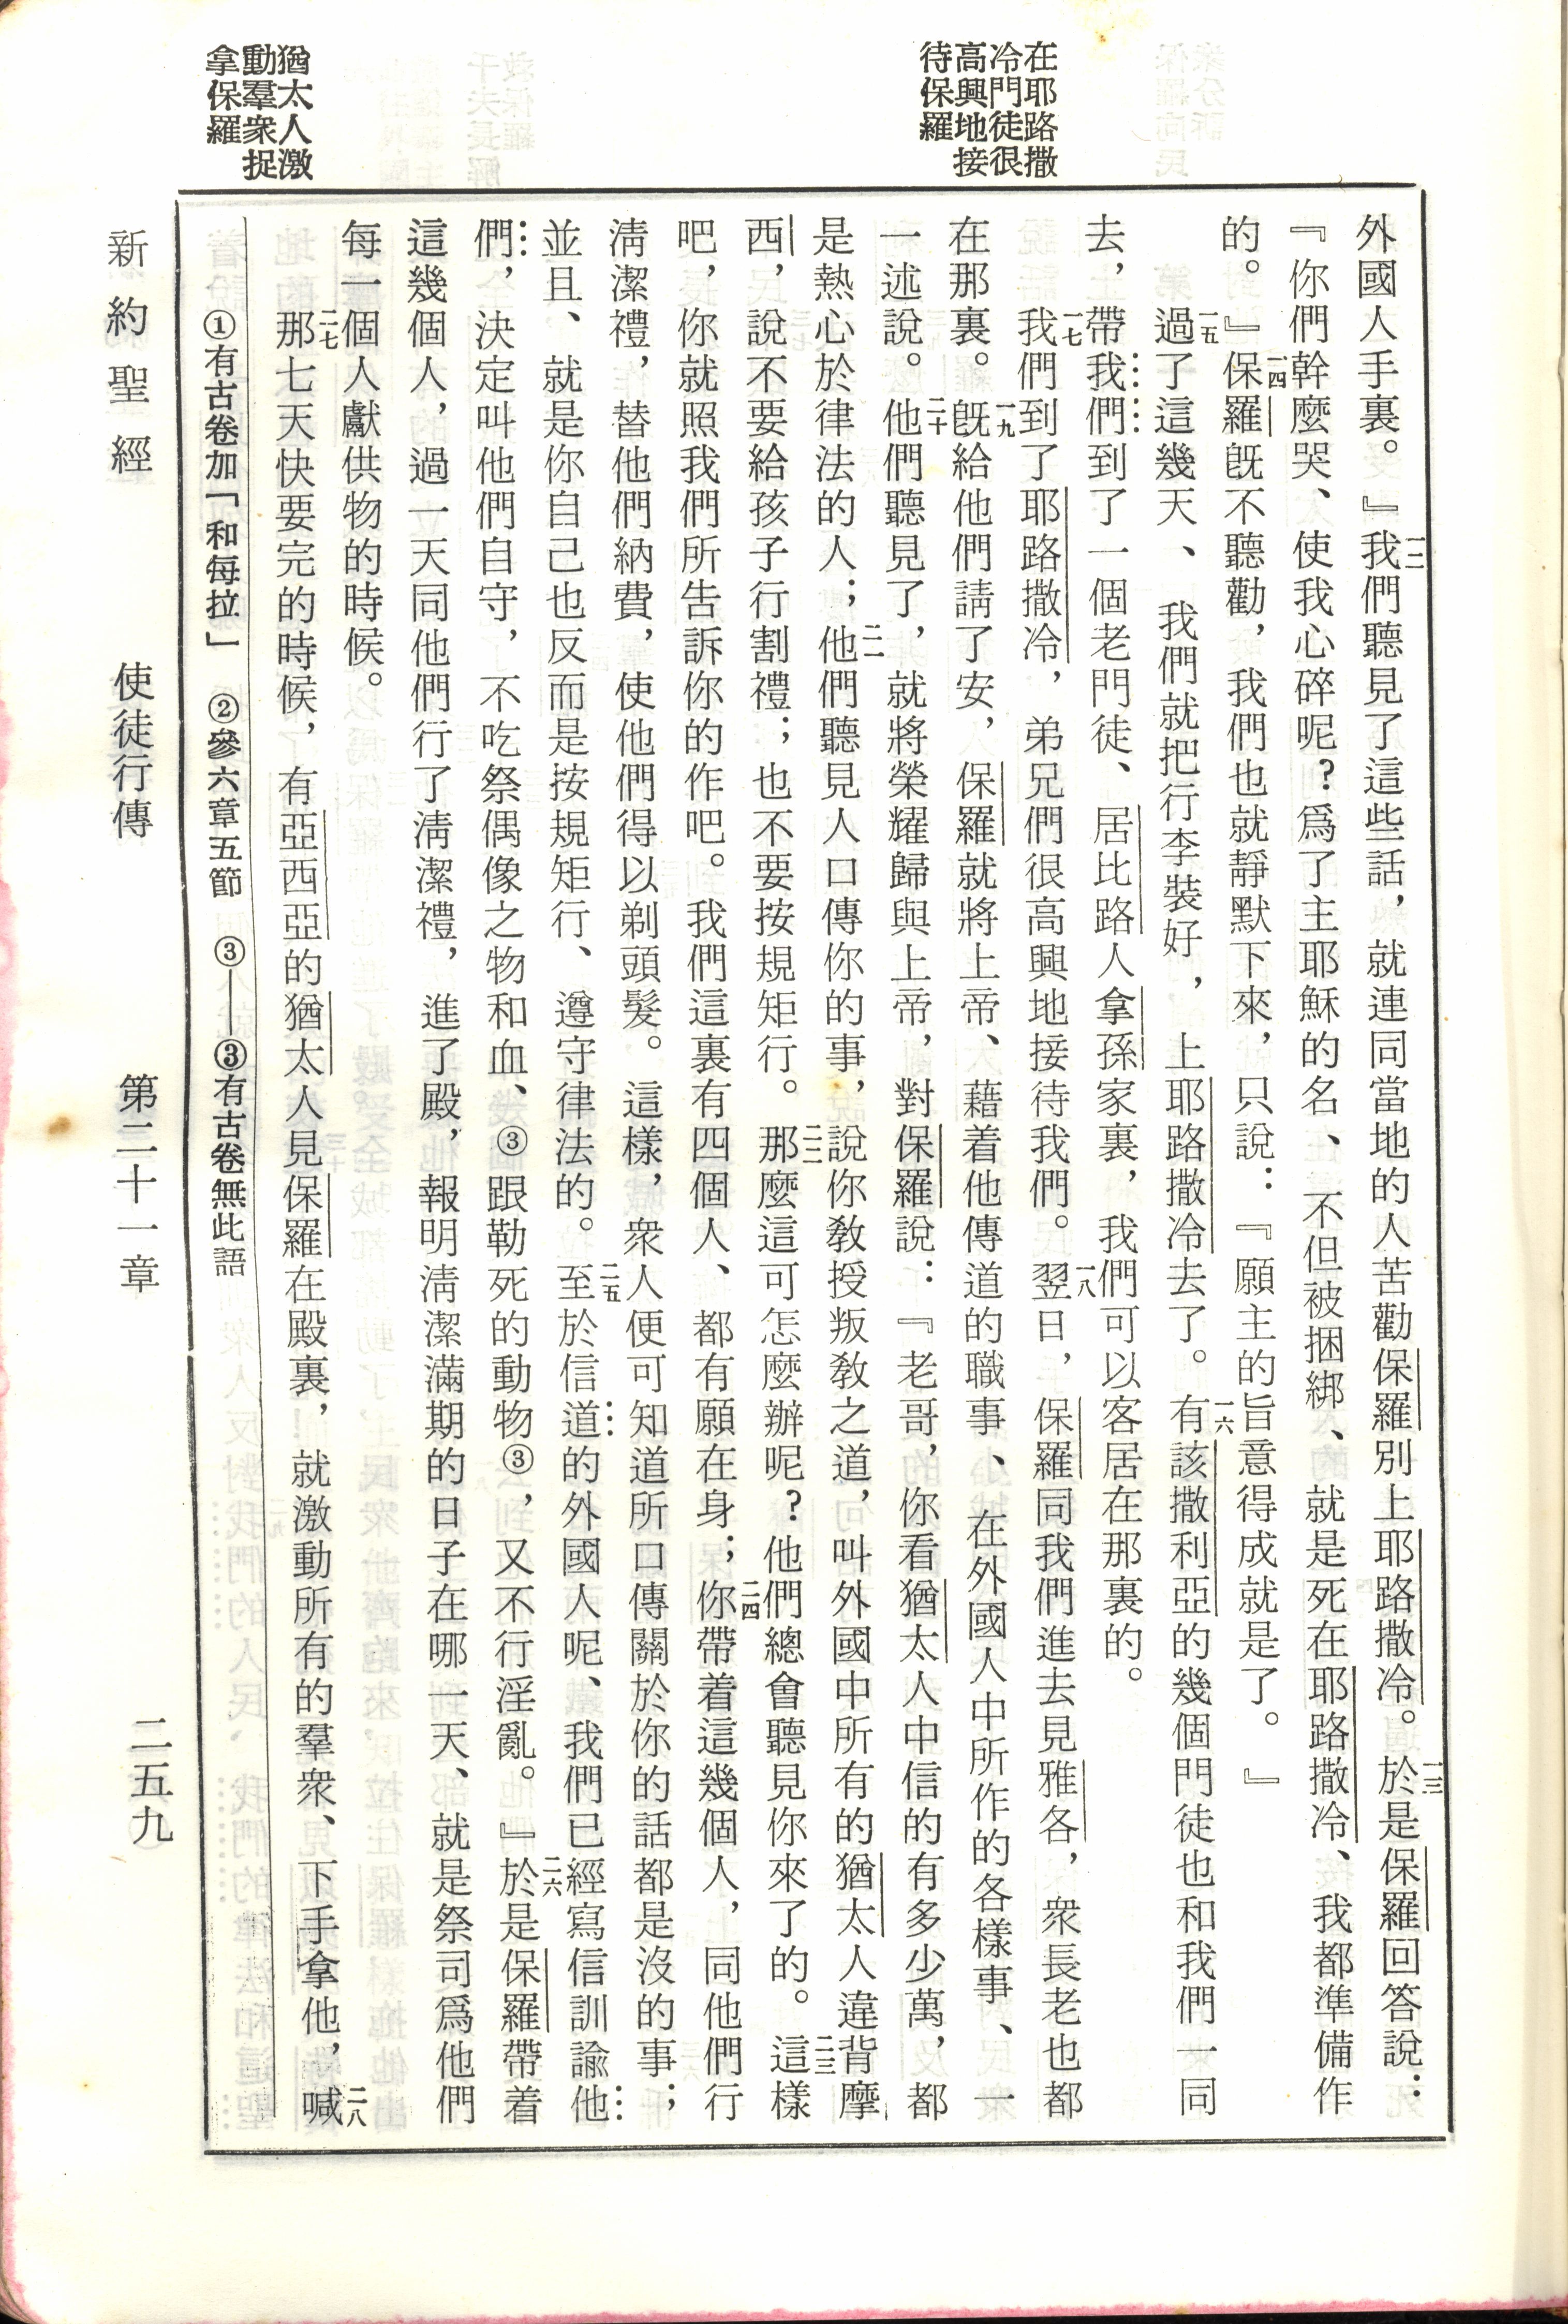 在耶路撒
冷門徒很
高興地接
待保羅
猶太人激
動羣衆捉
拿保羅
外國人手裏。』一二我們聽見了這些話，就連同當地的人苦勸保羅別上耶路撒冷。一三於是保羅回答說：
『你們幹麼哭、使我心碎呢?爲了主耶穌的名、不但被捆綁、就是死在耶路撒冷、我都準備作
的。』一四保羅旣不聽勸，我們也就靜默下來，只說：『願主的旨意得成就是了。』
一五過了這幾天、我們就把行李裝好，上耶路撒冷去了。一六有該撒利亞的幾個門徒也和我們一同
去，帶我們到了一個老門徒、居比路人拿孫家裏，我們可以客居在那裏的。
一七我們到了耶路撒冷，弟兄們很高興地接待我們。一八翌日，保羅同我們進去見雅各，衆長老也都
在那裏。一九旣給他們請了安，保羅就將上帝、藉着他傳道的職事、在外國人中所作的各樣事、一
一述說。二十他們聽見了，就將榮耀歸與上帝，對保羅說：『老哥，你看猶太人中信的有多少萬，都
是熱心於律法的人；二一他們聽見人口傳你的事，說你敎授叛敎之道，叫外國中所有的猶太人違背摩
西，說不要給孩子行割禮；也不要按規矩行。二二那麼這可怎麼辦呢?他們總會聽見你來了的。二三這樣
吧，你就照我們所告訴你的作吧。我們這裏有四個人、都有願在身；二四你帶着這幾個人，同他們行
淸潔禮，替他們納費，使他們得以剃頭髮。這樣，衆人便可知道所口傳關於你的話都是沒的事；
並且、就是你自己也反而是按規矩行、遵守律法的。二五至於信道的外國人呢、我們已經寫信訓諭他
們，決定叫他們自守，不吃祭偶像之物和血、③跟勒死的動物③，又不行淫亂。』二六於是保羅帶着
這幾個人，過一天同他們行了淸潔禮，進了殿，報明淸潔滿期的日子在哪一天、就是祭司爲他們
每一個人獻供物的時候。
二七那七天快要完的時候，有亞西亞的猶太人見保羅在殿裏，就激動所有的羣衆、下手拿他，二八喊
①有古卷加「和每拉」　②參六章五節　③——③有古卷無此語
新約聖經　使徒行傳　第二十一章　二五九